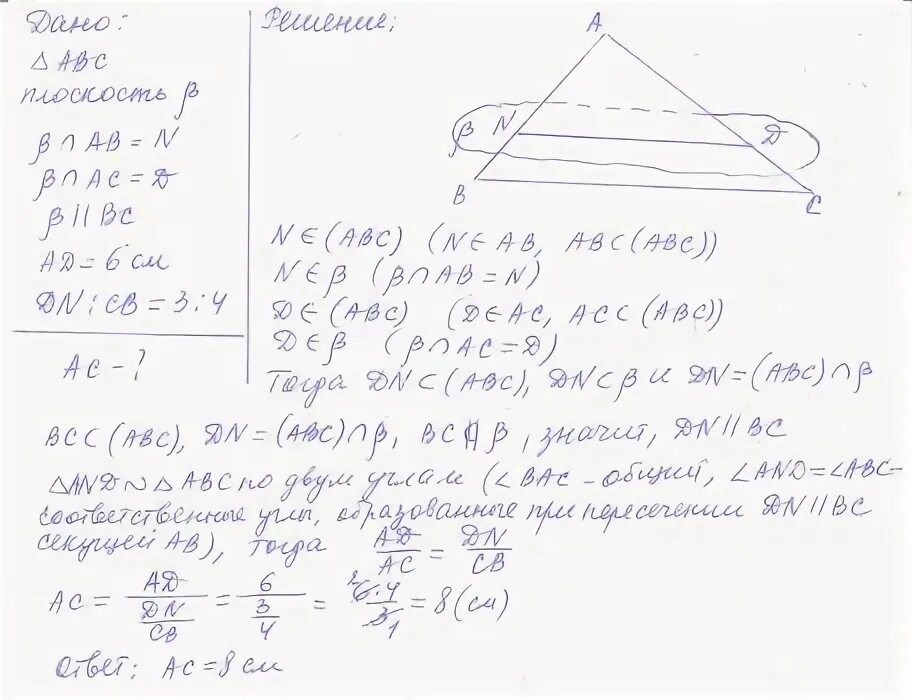 Дано:
△ ABC
плоскость β
β ∩ AB = N
β ∩ AC = D
β || BC
AD = 6 см
DN : CB = 3 : 4
AC - ?
Решение:
A
β N D
B
C
N ∈ (ABC) (N ∈ AB, AB ⊂ (ABC))
N ∈ β (β ∩ AB = N)
D ∈ (ABC) (D ∈ AC, AC ⊂ (ABC))
D ∈ β (β ∩ AC = D)
Тогда DN ⊂ (ABC), DN ⊂ β и DN = (ABC) ∩ β
BC ⊂ (ABC), DN = (ABC) ∩ β, BC || β, значит, DN || BC
△AND ~ △ABC по двум углам (∠BAC - общий, ∠AND = ∠ABC -
соответственные углы, образованные при пересечении DN || BC
секущей AB), тогда AD/AC = DN/CB
AC = AD/(DN/CB) = 6/(3/4) = 6·4/3 = 8 (см)
Ответ: AC = 8 см